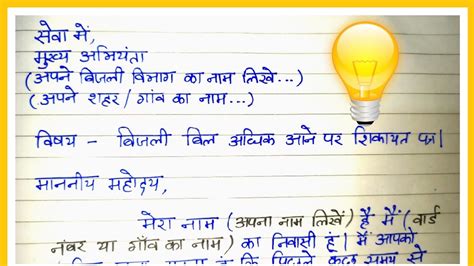 सेवा में,
मुख्य अभियंता
(अपने बिजली विभाग का नाम लिखे...)
(अपने शहर/गांव का नाम...)
विषय - बिजली बिल अधिक आने पर शिकायत पत्र।
माननीय महोदय,
मेरा नाम (अपना नाम लिखें) है मैं (वार्ड
नंबर या गाँव का नाम) का निवासी हूं। मैं आपको
कि पिछले कुछ समय से